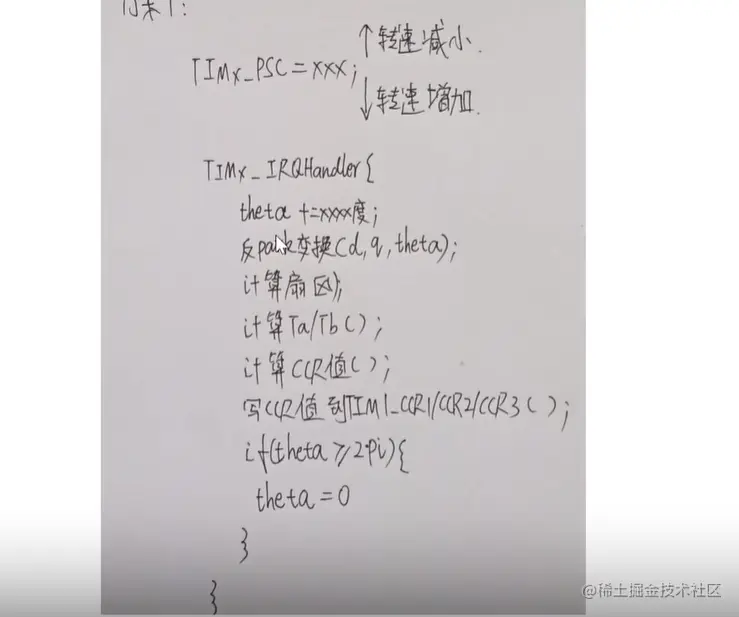 方案1:
↑转速减小.
TIMx_PSC=xxx;
↓转速增加.
TIMx_IRQHandler{
theta +=xxxx度;
反park变换(d,q,theta);
计算扇区();
计算Ta/Tb();
计算CCR值();
写CCR值到TIM1_CCR1/CCR2/CCR3();
if(theta≥2·Pi){
theta=0
}
}
@稀土掘金技术社区